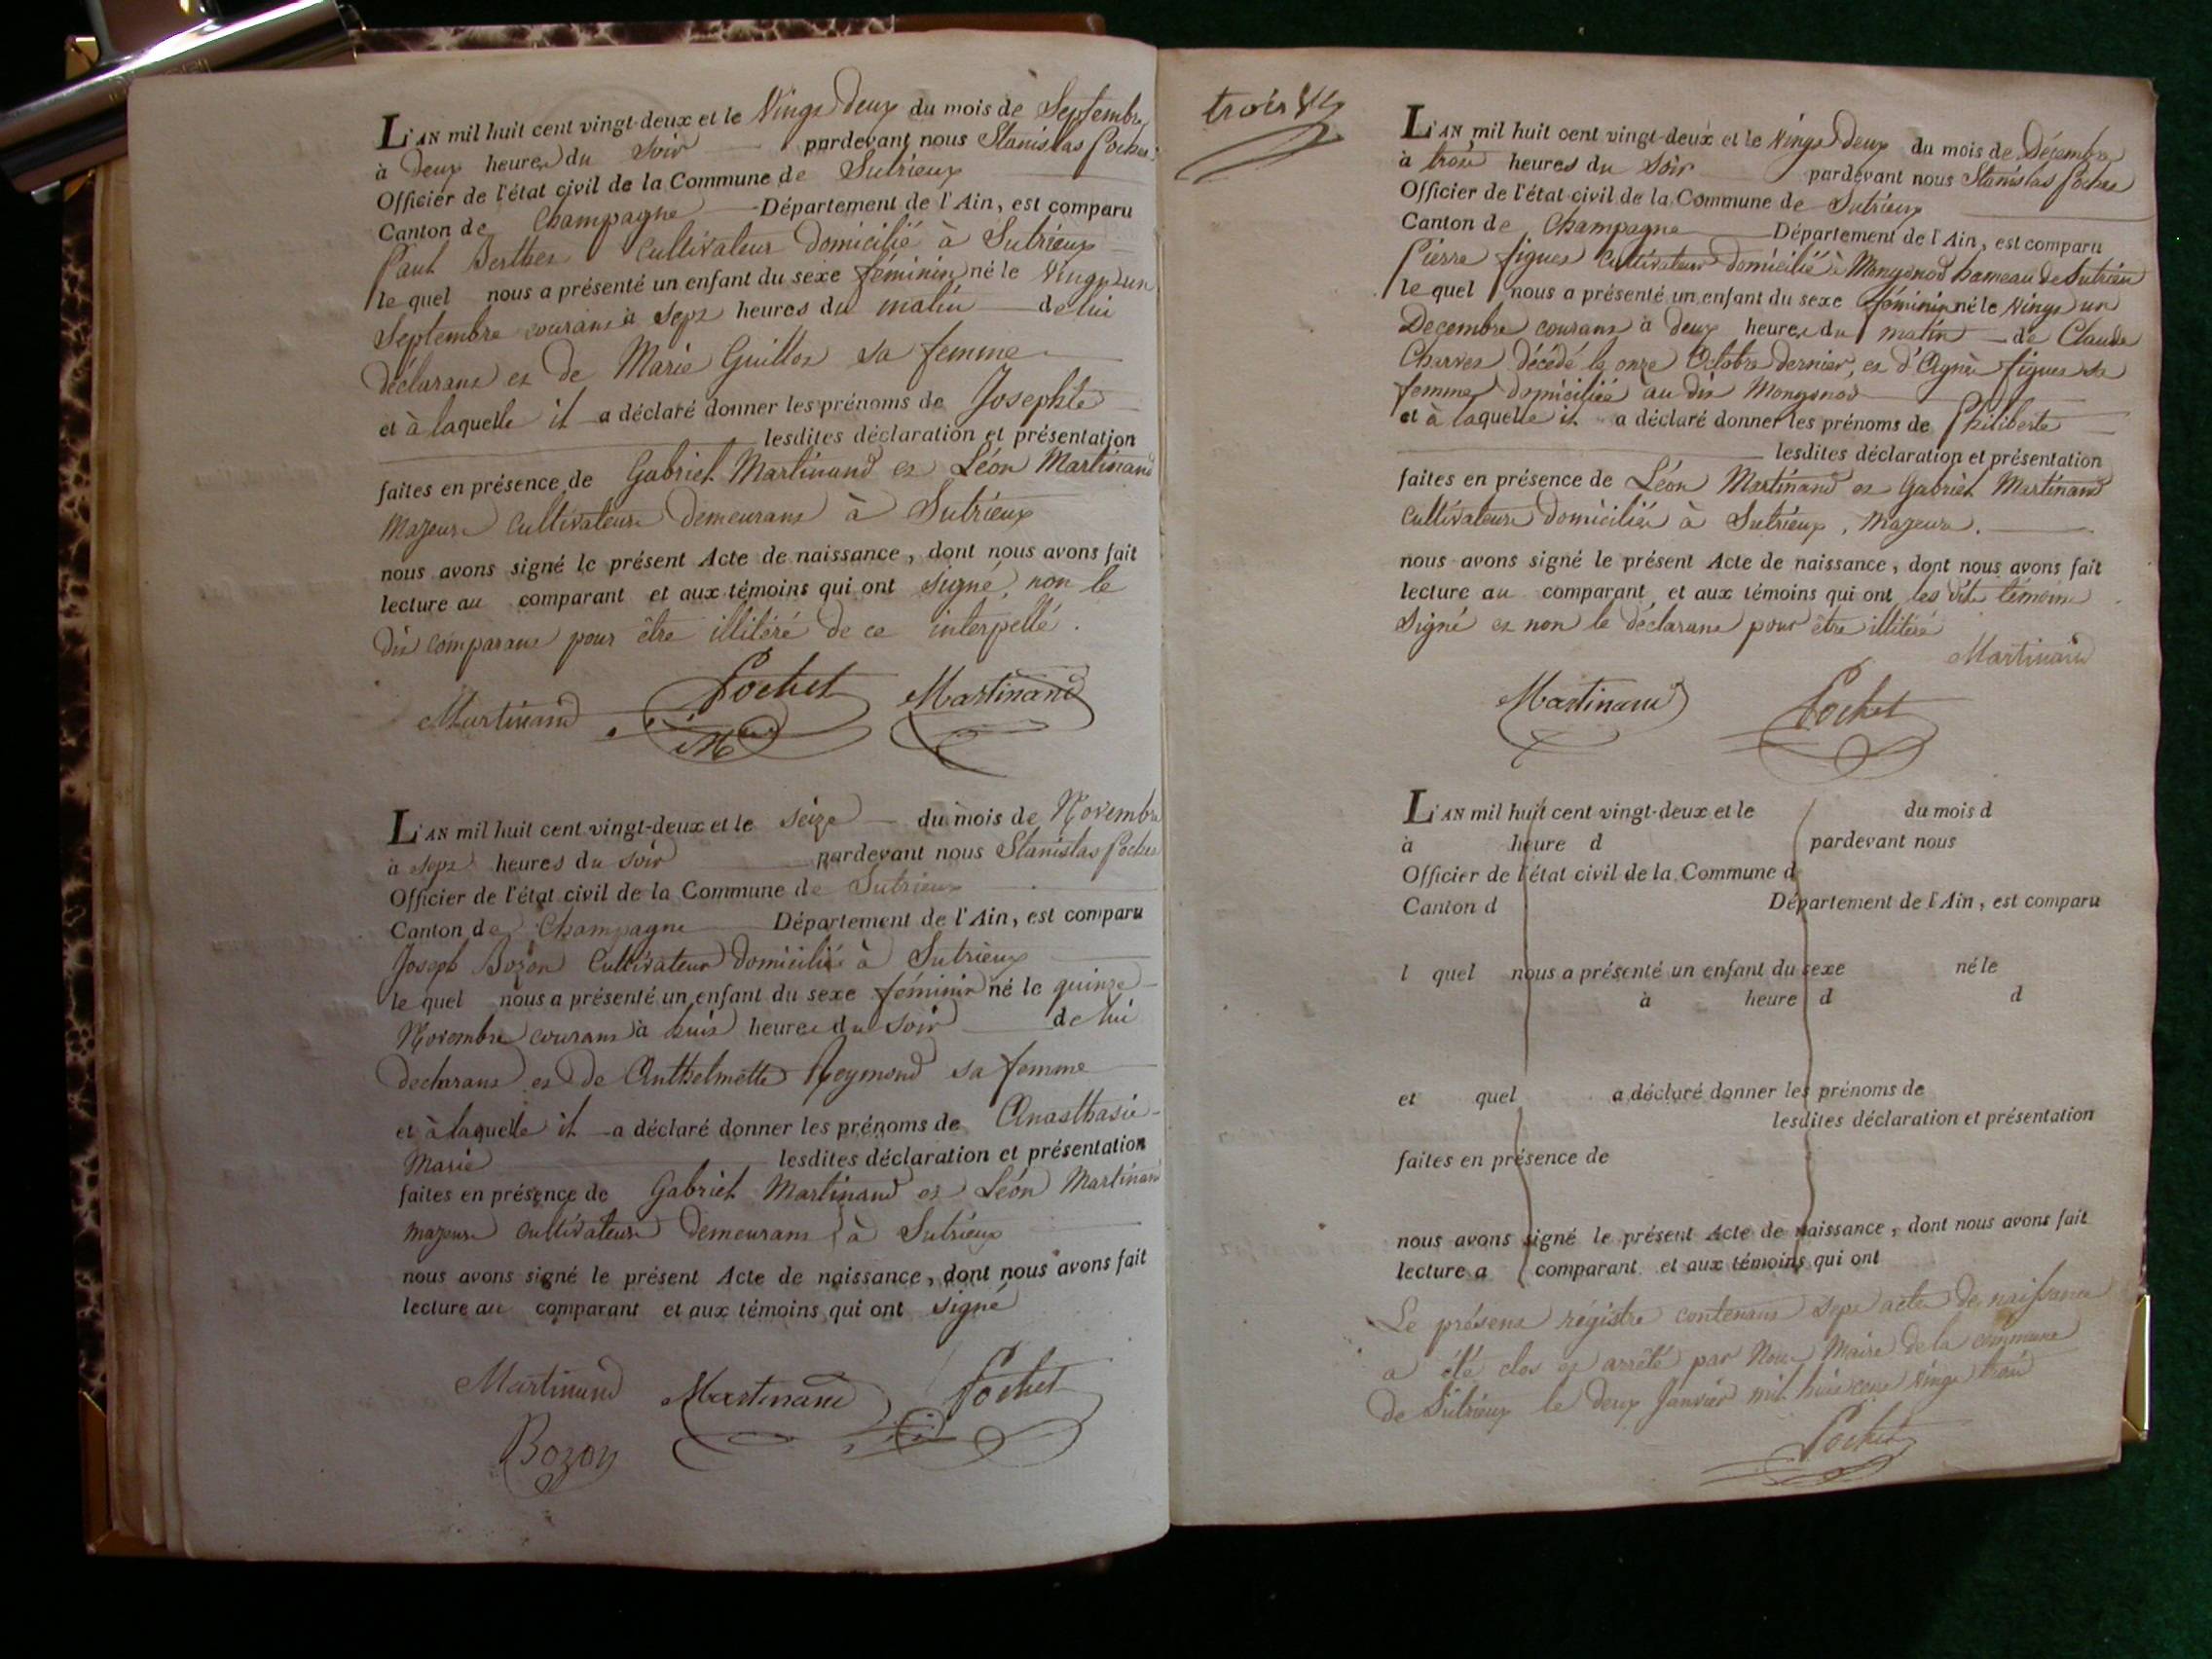 L'AN mil huit cent vingt-deux et le Vingt deux du mois de Septembre
à deux heures du soir pardevant nous Stanislas Pochet
Officier de l'état civil de la Commune de Sutrieux
Canton de Champagne Département de l'Ain, est comparu
Paul Berthet Cultivateur domicilié à Sutrieux
le quel nous a présenté un enfant du sexe féminin né le Vingt un
Septembre courant à sept heures du matin de lui
déclarant et de Marie Guillot sa femme
et à laquelle il a déclaré donner les prénoms de Josephte
lesdites déclaration et présentation
faites en présence de Gabriel Martinand et Léon Martinand
Majeurs Cultivateurs demeurant à Sutrieux
nous avons signé le présent Acte de naissance, dont nous avons fait
lecture au comparant et aux témoins qui ont signé, non le
dit comparant pour être illitéré de ce interpellé.
Martinand Pochet Martinand
L'AN mil huit cent vingt-deux et le seize du mois de Novembre
à sept heures du soir pardevant nous Stanislas Pochet
Officier de l'état civil de la Commune de Sutrieux
Canton de Champagne Département de l'Ain, est comparu
Joseph Bozon Cultivateur domicilié à Sutrieux
le quel nous a présenté un enfant du sexe féminin né le quinze
Novembre courant à huit heures du soir de lui
declarant et de Anthelmette Reymond sa femme
et à laquelle il a déclaré donner les prénoms de Anasthasie
Marie lesdites déclaration et présentation
faites en présence de Gabriel Martinand et Léon Martinand
majeurs cultivateurs demeurant à Sutrieux
nous avons signé le présent Acte de naissance, dont nous avons fait
lecture au comparant et aux témoins qui ont signé
Martinand Martinand Pochet
Bozon
trois
L'AN mil huit cent vingt-deux et le Vingt deux du mois de Décembre
à trois heures du soir pardevant nous Stanislas Pochet
Officier de l'état civil de la Commune de Sutrieux
Canton de Champagne Département de l'Ain, est comparu
Pierre figuet Cultivateur domicilié à Mongonod hameau de Sutrieu
le quel nous a présenté un enfant du sexe féminin né le Vingt un
Decembre courant à deux heures du matin de Claude
Charvet décédé le onze Octobre dernier, et d'Agnès figuet sa
femme domiciliée au dit Mongonod
et à laquelle il a déclaré donner les prénoms de Philiberte
lesdites déclaration et présentation
faites en présence de Léon Martinand et Gabriel Martinand
Cultivateurs domiciliés à Sutrieux, Majeurs.
nous avons signé le présent Acte de naissance, dont nous avons fait
lecture au comparant et aux témoins qui ont les dits témoins
Signé et non le déclarant pour être illitéré
Martinand
Martinand Pochet
L'AN mil huit cent vingt-deux et le du mois d
à heure d pardevant nous
Officier de l'état civil de la Commune d
Canton d Département de l'Ain, est comparu
l quel nous a présenté un enfant du sexe né le
à heure d d
et quel a déclaré donner les prénoms de
lesdites déclaration et présentation
faites en présence de
nous avons signé le présent Acte de naissance, dont nous avons fait
lecture a comparant et aux témoins qui ont
Le présent régistre contenant sept actes de naissance
a été clos et arrêté par Nous Maire de la commune
de Sutrieux le deux Janvier mil huit cent vingt trois
Pochet